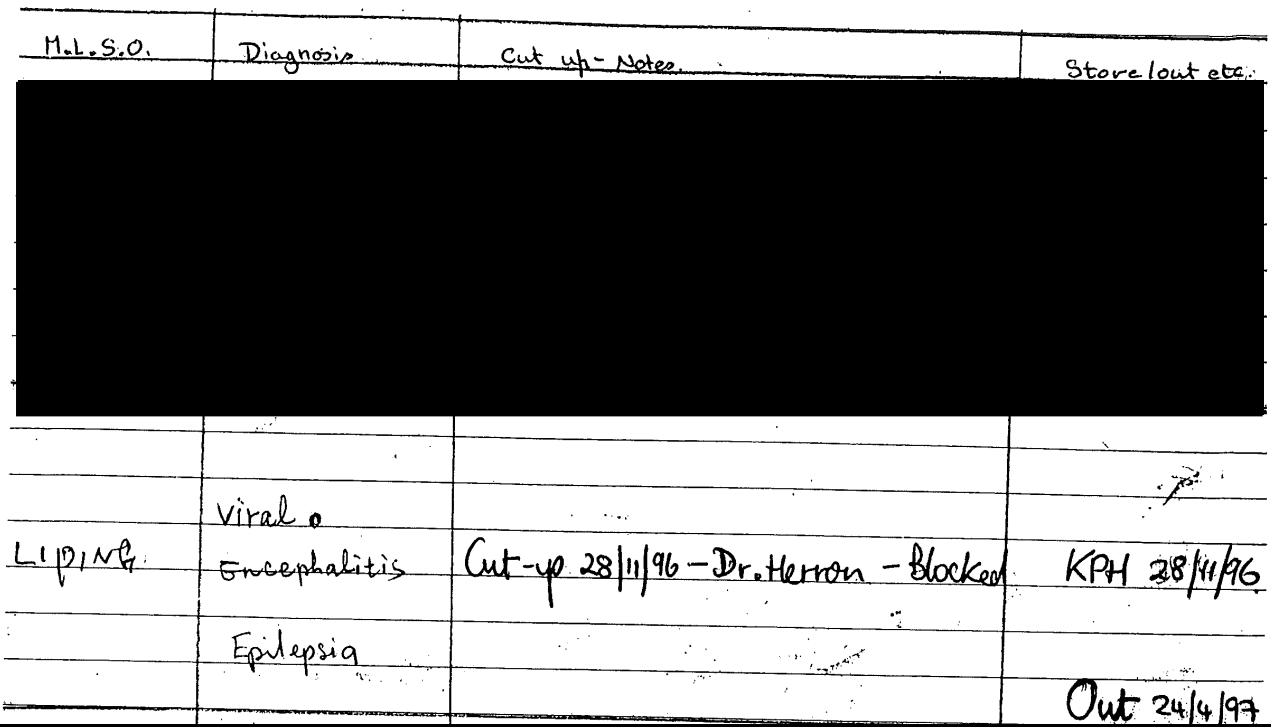 M.L.S.O. Diagnosis Cut up - Notes. Store/out etc.
Viral
LIPING Encephalitis Cut-up 28/11/96 - Dr. Herron - Blocked KPH 28/11/96
Epilepsia
Out 24/4/97